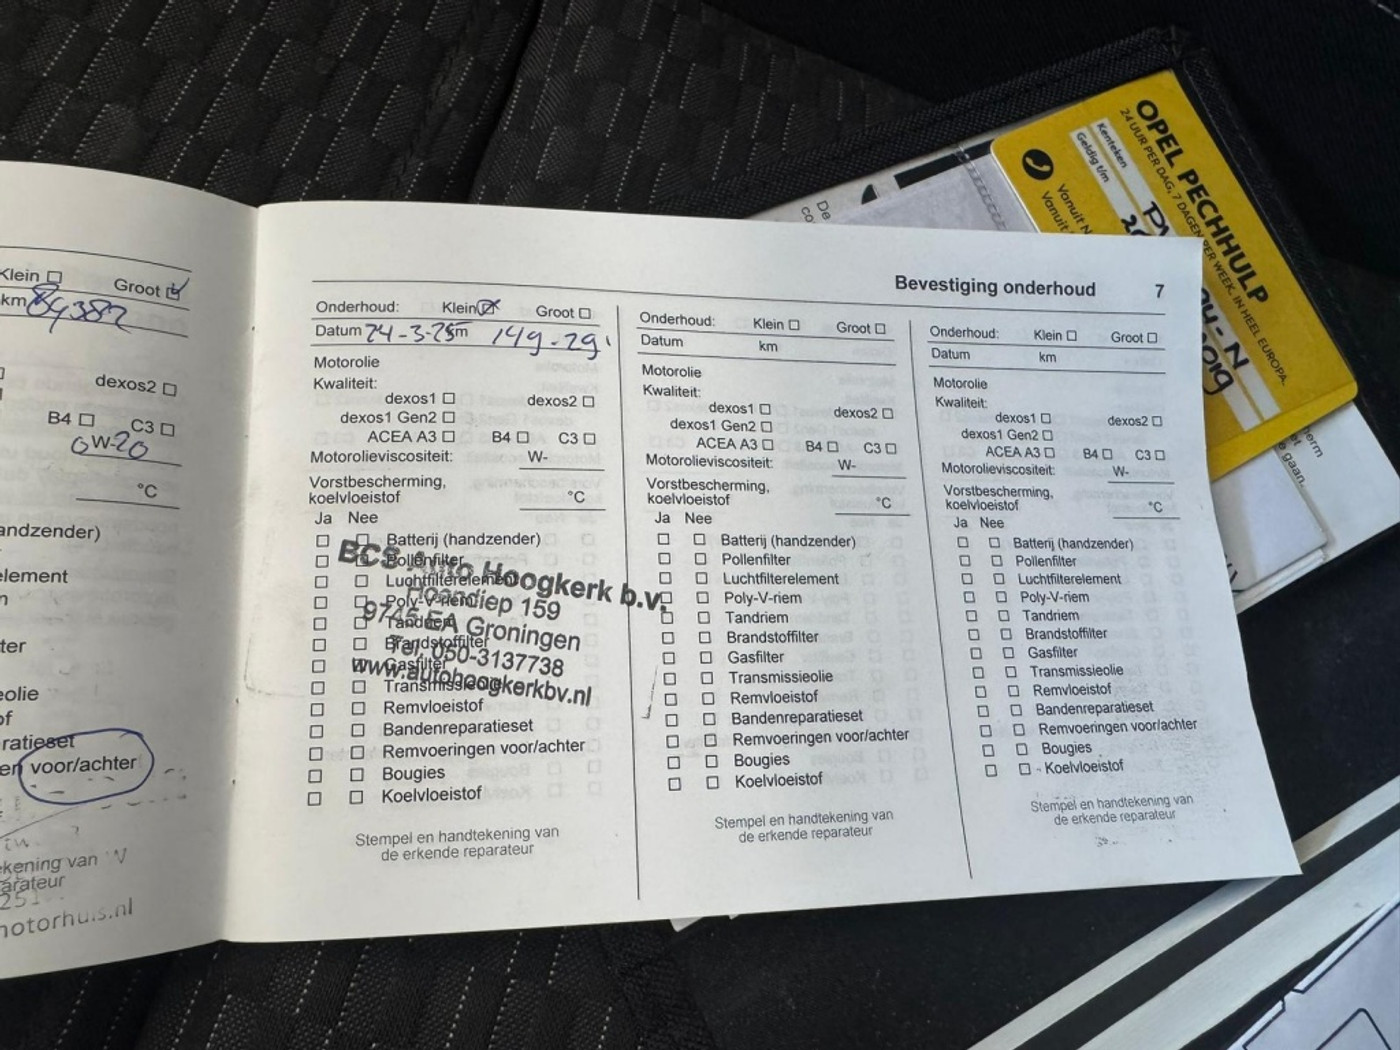 Klein Groot
km 84382
dexos2
B4 C3
0W-20
°C
andzender)
element
n
ter
eolie
of
ratieset
en voor/achter
kening van
arateur
251
motorhuis.nl
Bevestiging onderhoud 7
Onderhoud: Klein Groot
Datum 24-3-25 149.29
Motorolie
Kwaliteit:
dexos1 dexos2
dexos1 Gen2
ACEA A3 B4 C3
Motorolieviscositeit: W-
Vorstbescherming,
koelvloeistof °C
Ja Nee
Batterij (handzender)
Pollenfilter
Luchtfilterelement
Poly-V-riem
Tandriem
Brandstoffilter
Gasfilter
Transmissieolie
Remvloeistof
Bandenreparatieset
Remvoeringen voor/achter
Bougies
Koelvloeistof
Stempel en handtekening van
de erkende reparateur
BCS Auto Hoogkerk b.v.
Hoendiep 159
9745 EA Groningen
Tel. 050-3137738
www.autohoogkerkbv.nl
Onderhoud: Klein Groot
Datum km
Motorolie
Kwaliteit:
dexos1 dexos2
dexos1 Gen2
ACEA A3 B4 C3
Motorolieviscositeit: W-
Vorstbescherming,
koelvloeistof °C
Ja Nee
Batterij (handzender)
Pollenfilter
Luchtfilterelement
Poly-V-riem
Tandriem
Brandstoffilter
Gasfilter
Transmissieolie
Remvloeistof
Bandenreparatieset
Remvoeringen voor/achter
Bougies
Koelvloeistof
Stempel en handtekening van
de erkende reparateur
Onderhoud: Klein Groot
Datum km
Motorolie
Kwaliteit:
dexos1 dexos2
dexos1 Gen2
ACEA A3 B4 C3
Motorolieviscositeit: W-
Vorstbescherming,
koelvloeistof °C
Ja Nee
Batterij (handzender)
Pollenfilter
Luchtfilterelement
Poly-V-riem
Tandriem
Brandstoffilter
Gasfilter
Transmissieolie
Remvloeistof
Bandenreparatieset
Remvoeringen voor/achter
Bougies
Koelvloeistof
Stempel en handtekening van
de erkende reparateur
OPEL PECHHULP
24 UUR PER DAG, 7 DAGEN PER WEEK. IN HEEL EUROPA.
Kenteken
Geldig t/m
Vanuit N
Vanuit
De
co
herm
et
e gaan.